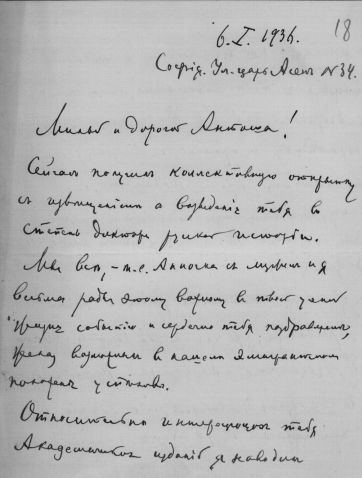 18
6. I. 1936.
София. Ул. царь Асень № 34.
Милый и Дорогой Антоша!
Сейчас получил коллективную открытку
с извещением о возведении тебя в
степень доктора русской истории.
Мы все, – т.е. Анночка с мужем и я
весьма рады этому важному в твоей ученой
жизни событию и сердечно тебя поздравляем,
в нашем эмигрантском
Относительно интересующих тебя
Академических изданий я наводил